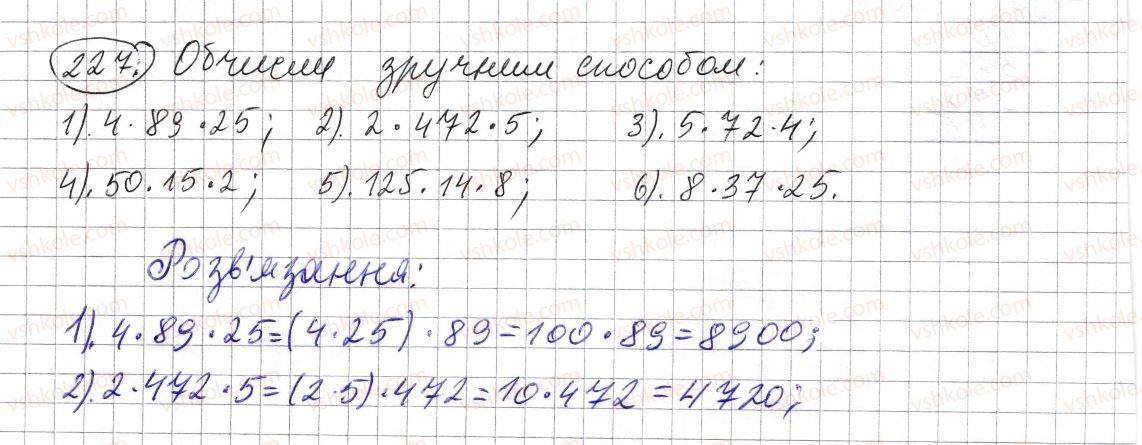 227. Обчисли зручним способом:
1). 4·89·25; 2). 2·472·5; 3). 5·72·4;
4). 50·15·2; 5). 125·14·8; 6). 8·37·25.
Розв'язання:
1). 4·89·25=(4·25)·89=100·89=8900;
2). 2·472·5=(2·5)·472=10·472=4720;